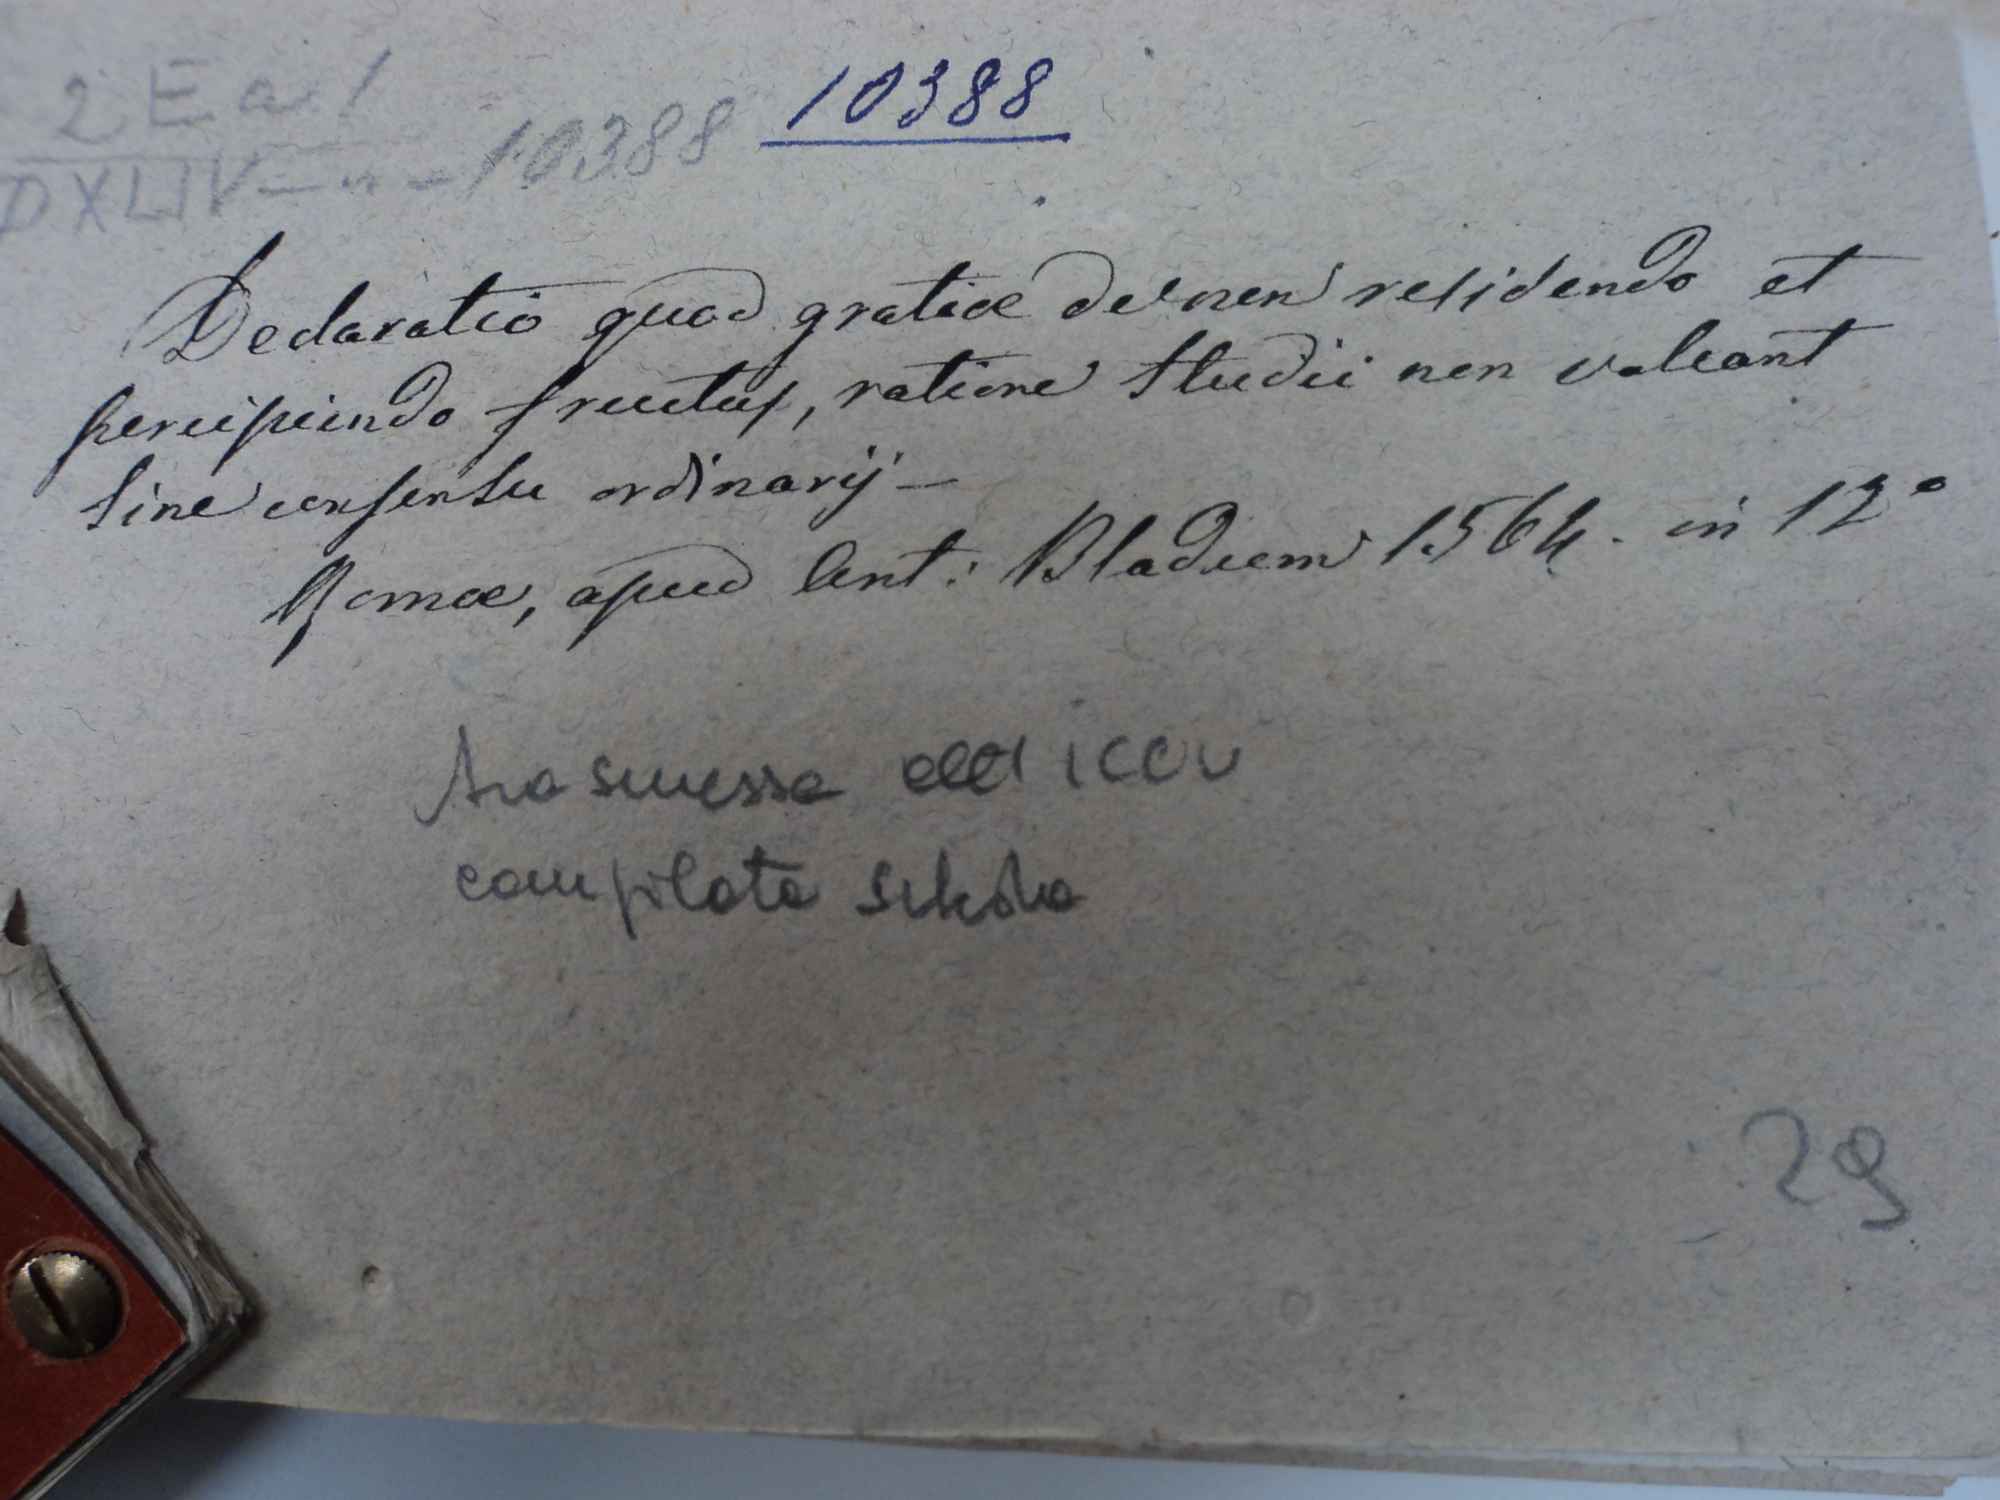 2 E a 1
DXLIV - n - 10388
10388
Declaratio quod gratiæ de non residendo et
percipiendo fructus, ratione studii non valeant
sine consensu ordinarij -
Romæ, apud Ant: Bladum 1564. in 12°
trasmessa all'ICCU
compilata scheda
29